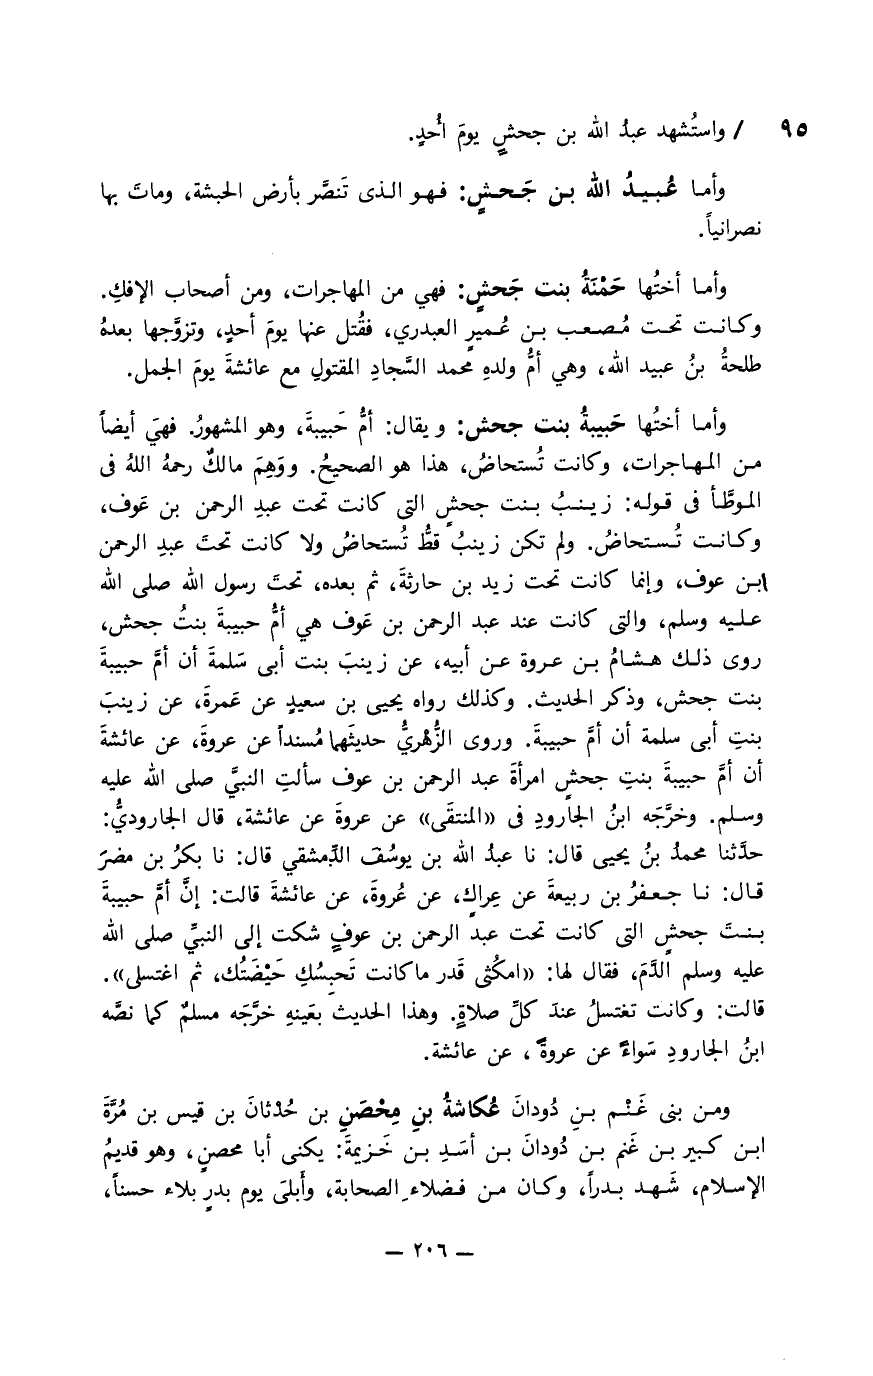 ٩٥ / واستُشهد عبدُ الله بن جحشٍ يومَ أُحدٍ.
وأما عُبيدُ الله بن جَحشٍ: فهو الذى تَنصَّر بأرض الحبشة، وماتَ بها
نصرانياً.
وأما أختُها حَمْنَةُ بنت جَحشٍ: فهي من المهاجرات، ومن أصحاب الإفكِ.
وكانت تحت مُصعب بن عُميرٍ العبدري، فقُتل عنها يومَ أحدٍ، وتزوَّجها بعدهُ
طلحةُ بنُ عبيد الله، وهي أمُّ ولدهِ محمد السَّجادِ المقتولِ مع عائشةَ يومَ الجمل.
وأما أختُها حَبيبةُ بنت جحش: ويقال: أمُّ حَبيبةَ، وهو المشهورُ. فهيَ أيضاً
من المهاجرات، وكانت تُستحاضُ، هذا هو الصحيحُ. ووَهِمَ مالكٌ رحمهُ اللهُ فى
الموطَّأ فى قوله: زينبُ بنت جحشٍ التى كانت تحت عبدِ الرحمن بن عَوف،
وكانت تُستحاضُ. ولم تكن زينبُ قطُّ تُستحاضُ ولا كانت تحتَ عبدِ الرحمن
ابن عوف، وإنما كانت تحت زيد بن حارثةَ، ثم بعده، تحتَ رسول الله صلى الله
عليه وسلم، والتى كانت عند عبد الرحمن بن عَوف هي أمُّ حبيبةَ بنتُ جحش،
روى ذلك هشامُ بن عروة عن أبيه، عن زينبَ بنت أبى سَلمةَ أن أمَّ حبيبةَ
بنت جحش، وذكر الحديث. وكذلك رواه يحيى بن سعيدٍ عن عَمرةَ، عن زينبَ
بنتِ أبى سلمة أن أمَّ حبيبةَ. وروى الزُّهريُّ حديثَها مُسنداً عن عروةَ، عن عائشةَ
أن أمَّ حبيبةَ بنتِ جحشٍ امرأةَ عبد الرحمن بن عوف سألتِ النبيَّ صلى الله عليه
وسلم. وخرَّجه ابنُ الجارودِ فى «المنتقَى» عن عروةَ عن عائشة، قال الجاروديُّ:
حدَّثنا محمدُ بنُ يحيى قال: نا عبدُ الله بن يوسُفَ الدِّمشقي قال: نا بكرُ بن مضرَ
قال: نا جعفرُ بن ربيعةَ عن عِراكٍ، عن عُروةَ، عن عائشةَ قالت: إنَّ أمَّ حبيبةَ
بنتَ جحشٍ التى كانت تحت عبد الرحمن بن عوفٍ شكت إلى النبيِّ صلى الله
عليه وسلم الدَّمَ، فقال لها: «امكُثى قَدر ماكانت تَحبِسُكِ حَيْضَتُك، ثم اغتسلى».
قالت: وكانت تغتسلُ عندَ كلِّ صلاةٍ. وهذا الحديث بعَينهِ خرَّجَه مسلمٌ كما نصَّه
ابنُ الجارودِ سَواءً عن عروةَ، عن عائشة.
ومن بنى غَنْم بنِ دُودانَ عُكاشةُ بنِ مِحْصَنٍ بن حُدْثانَ بن قيس بن مُرَّةَ
ابن كبير بن غَنمِ بن دُودانَ بن أسَدِ بن خَزيمةَ: يكنى أبا محصنٍ، وهو قديمُ
الإسلام، شَهد بدراً، وكان من فضلاء الصحابة، وأبلىَ يوم بدرٍ بلاء حسناً،
— ٢٠٦ —